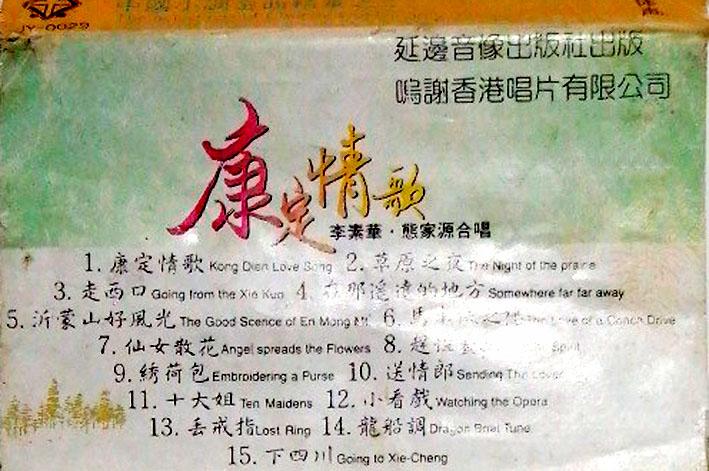 JY-0029
中國小調
延邊音像出版社出版
鳴謝香港唱片有限公司
康定情歌
李素華·態家源合唱
1. 康定情歌 Kong Dien Love Song 2. 草原之夜 The Night of the prairie
3. 走西口 Going from the Xie Kuo 4. 在那遙遠的地方 Somewhere far far away
5. 沂蒙山好風光 The Good Scence of En Mong Mt 6. The Love of a Coach Drive
7. 仙女散花 Angel spreads the Flowers 8. Spirit
9. 綉荷包 Embroidering a Purse 10. 送情郎 Sending The Lover
11. 十大姐 Ten Maidens 12. 小看戲 Watching the Opera
13. 丢戒指 Lost Ring 14. 龍船調 Dragon Boat Tune
15. 下四川 Going to Xie-Cheng